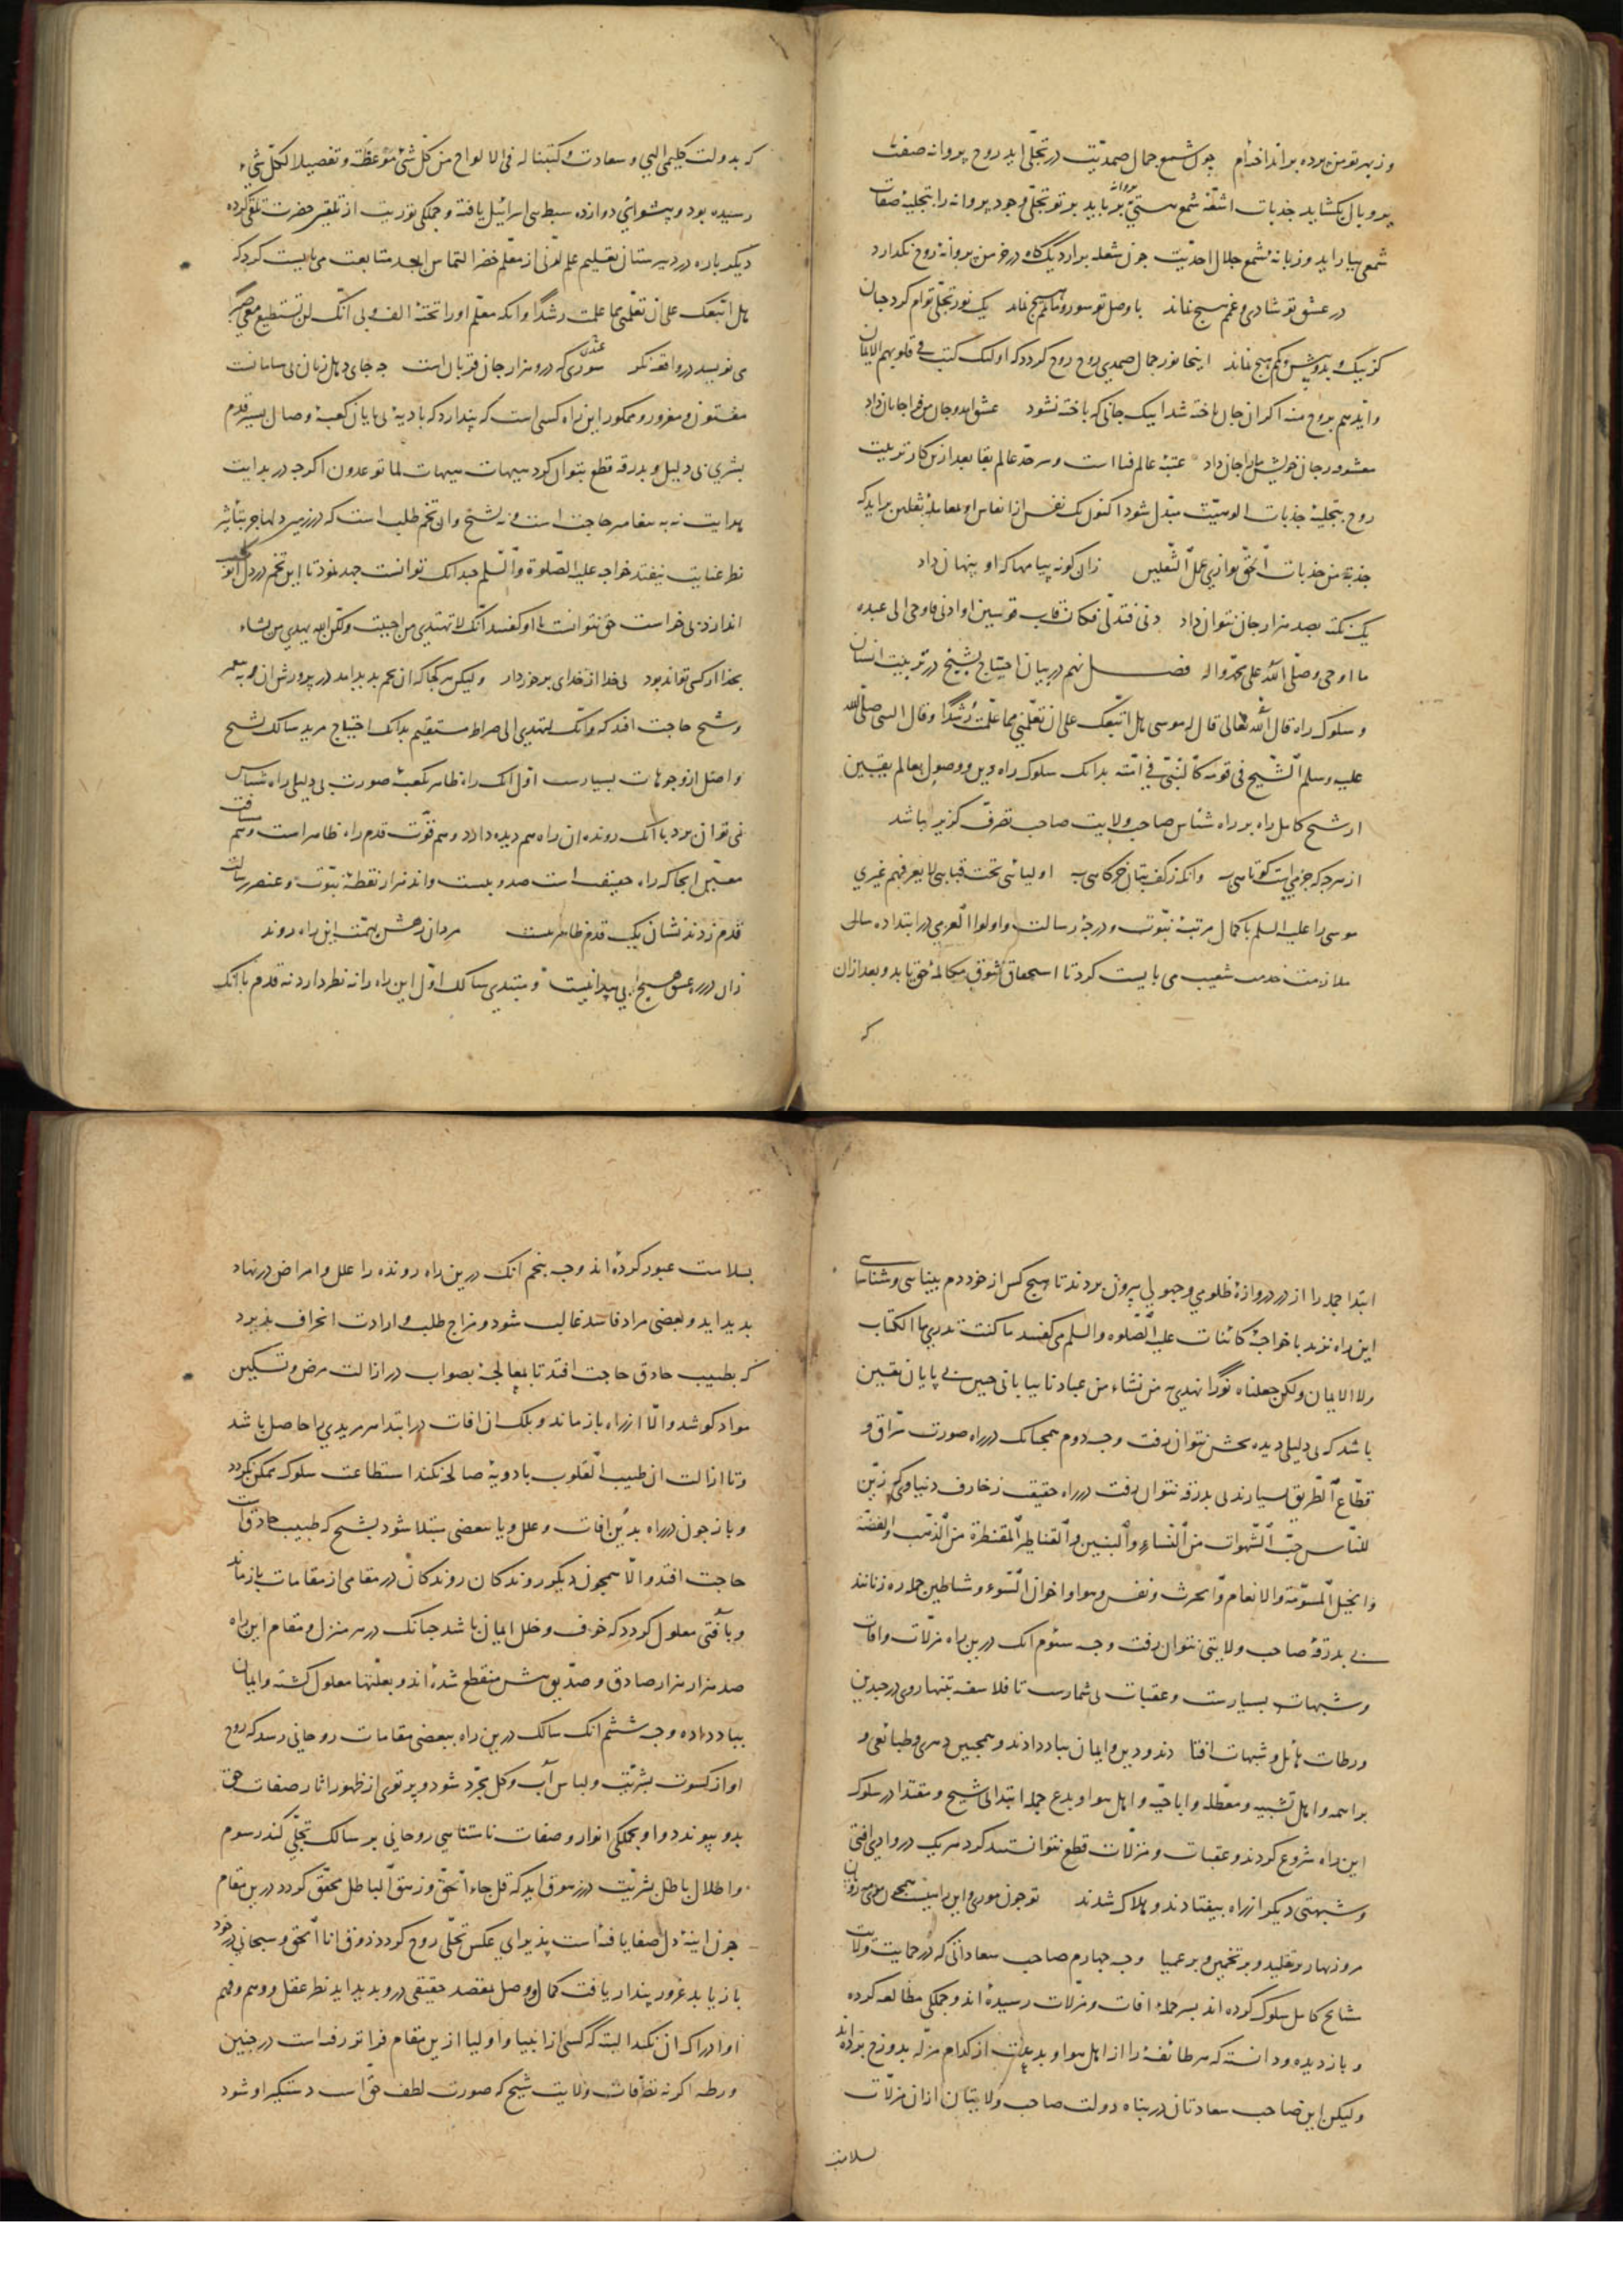 وز بهر تو من پرده برانداخته‌ام چون شمع جمال صمدیّت در تجلّی اید روح پروانه صفت
پر و بال بکشاید جذبات اشعّهٔ شمع هستیِ پروانه بربايد پرتو تجلّی وجود پروانه را بتحلیهٔ صفات
شمعی بیاراید و زبانهٔ شمع جلال احدیّت چون شعله برارد یک کاه در خرمن پروانهٔ روح نکذارد
در عشق تو شادی و غمم هیچ نماند با وصل تو سور و ماتمم هیچ نماند یک نور تجلّی توام کرد جنان
کز نیک و بد و بیش و کمم هیچ نماند اینجا نور جمال صمدی روح روح کردد که اولئک کتب فی قلوبهم الایمان
وایدهم بروح منه اکر ان جان باخته شد اینک جانی که باخته نشود عشق امد و جان من فرا جانان داد
معشوقه ز جان خویش ما را جان داد عتبهٔ عالم فنا است و سرحدّ عالم بقا بعد ازین کار تربیت
روح بتجلیهٔ جذبات الوهیّت مبدّل شود اکنون یک نفس از انفاس او بمعاملهٔ ثقلین براید که
جذبة من جذبات الحقّ توازی عمل الثّقلین زان کونه پیامها که او پنهان داد
یک نکته بصد هزار جان نتوان داد دنی فتدلّی فکان قاب قوسین او ادنی فاوحی الی عبده
ما اوحی وصلّی الله علی محمّد واله فصل نهم در بیان احتیاج بشیخ در تربیت انسان
و سلوک راه قال الله تعالی قال له موسی هل اتّبعک علی ان تعلّمنی مما علّمت رشدا وقال النبی صلّی الله
علیه وسلم الشّیخ فی قومه کالنّبیّ فی امّته بدانک سلوک راه دین و وصول بعالم یقین
از شیخ کامل راه بر راه شناس صاحب ولایت صاحب تصرّف کزیر نباشد
از هرچه جز میست کوتاهی به وانکه ز کف بتان خرکاهی به اولیائی تحت قبابی لا یعرفهم غیری
موسی را علیه السلم با کمال مرتبهٔ نبّوت و درجهٔ رسالت و اولوا العزمی در ابتدا ده سالی
ملازمت خدمت شعیب می بایست کرد تا استحقاق شرف مکالمهٔ حق یابد و بعد ازان
که
که بدولت کلیمی اللهی و سعادت وکتبنا له فی الالواح من کل شئ موعظة وتفصیلا لکلّ شیء
رسیده بود و پیشوائی دوازده سبط بنی اسرائیل یافته و جملکی توریت از تلقین حضرت تلقّی کرده
دیکر باره در دبیرستان تعلیم علم لدنی از معلّم خضر التماس ابجد متابعت می بایست کرد که
هل اتّبعک علی ان تعلّمنی مما علمت رشدا وانکه معلّم او را تختهٔ الف و بی انّک لن تستطیع معی صبرا
می نویسد در واقعه نکر عشق سوری که درو هزار جان قربان است جه جای دهل زنان بی سامانست
مفتون و مغرور و ممکور این راه کسی است که پندارد که بادیهٔ بی پایان کعبهٔ وصال بسیر قدم
بشری بی دلیل و بدرقه قطع بتوان کرد هیهات هیهات لما توعدون اکرچه در بدایت
هدایت نه به پیغامبر حاجت است و نه بشیخ وان تخم طلب است که در زمین دلها جز بتأثیر
نظر عنایت نیفتد خواجه علیه الصّلوة والسّلم جندانک توانست جهد نمود تا این تخم در دل ابو
اندازد بی خواست حق نتوانست با او کفتند انّک لا تهتدی من احببت ولکن الله یهدی من یشاء
بخدا ار کسی تواند بود بی خدا از خدای برخوردار ولیکن هر کجا که ان تخم بدید امد در پرورش ان به پیغمبر
و شیخ حاجت افتد که وانّک لتهدی الی صراط مستقیم بدانک احتیاج مرید سالک بشیخ
واصل از وجوهات بسیارست اوّل انک راه ظاهر بکعبهٔ صورت بی دلیلی راه شناس
نمی توان برد با انک رونده ان راه هم دیده دارد و هم قوّت قدم و راه ظاهر است و هم مسافت
معیّن انجا که راه حقیقت است صد و بیست و اند هزار نقطهٔ نبّوت و عنصر رسالت
قدم زدند نشان یک قدم ظاهر نیست مردان رهش بهمّت این راه روند
زان در ره عشق هیچ پی پیدا نیست و مبتدی سالک اوّل این راه را نه نظر دارد نه قدم باانک
ابتدا جمله را از در دروازهٔ ظلومی و جهولی بیرون بردند تا هیچ کس از خود دم بینایی و شناسایی
این راه نزند با خواجهٔ کائنات علیه الصّلوه والسلم می کفتند ما کنت تدری ما الکتاب
ولا الایمان ولکن جعلناه نورا نهدی به من نشاء من عبادنا بیابانی جنین بی پایان یقین
باشد که بی دلیلی دیده بخش نتوان رفت وجه دوم همجنانک در راه صورت سرّاق و
قطّاع الطّریق بسیارند بی بدرقه نتوان رفت در راه حقیقت زخارف دنیاوی که زیّن
للنّاس حبّ الشّهوات من النّساء والبنین والقناطیر المقنطرة من الذّهب والفضّة
والخیل المسوّمة والانعام والحرث و نفس و هوا و اخوان السّوء و شیاطین جمله ره زنانند
بی بدرقهٔ صاحب ولایتی نتوان رفت وجه سئوم انک درین راه مزلّات و افات
و شبهات بسیارست و عقبات بی شمارست تا فلاسفه بتنها روی در جندین
ورطات هائل و شبهات افتادند و دین و ایمان بباد دادند و همجنین دهری و طبائعی و
براهمه و اهل تشبیه و معطّله و اباحیّه و اهل هوا و بدع جمله ابتدا بی شیخ و مقتدا در سلوک
این راه شروع کردند و عقبات و مزلّات قطع نتوانستند کرد هر یک در وادی افتی
و شبهتی دیکر از راه بیفتادند و هلاک شدند تو جون موری و این راهیست همچون موی بت رویان
مرو زنهار بر تقلید و بر تخمین و بر عمیا وجه جهارم صاحب سعادانی که در حمایت ولایت
مشایخ کامل سلوک کرده اند بسر جملهٔ افات و مزلّات رسیدهٔ اند و جملکی مطالعه کرده
و باز دیده و دانسته که هر طائفهٔ را از اهل هوا و بدعت از کدام مزله بدوزخ برده‌اند
ولیکن این صاحب سعادتان در پناه دولت صاحب ولایتان از ان مزلّات
بسلامت
بسلامت عبور کردهٔ اند وجه پنجم انک درین راه رونده را علل و امراض در نهاد
بدید اید و بعضی مراد فاسد غالب شود و مزاج طلب و ارادت انحراف پذیرد
که بطبیب حاذق حاجت افتد تا بمعالجهٔ بصواب در ازالت مرض و تسکین
مواد کوشد و الّا از راه باز ماند و بلک ان افات در ابتدا هر مریدی را حاصل باشد
و تا ازالت ان طبیب القلوب بادویهٔ صالحه نکند استطاعت سلوک ممکن نکردد
و باز جون در راه بدین افات و علل و یا ببعضی مبتلا شود بشیخ که طبیب حاذق است
حاجت افتد و الّا همجون دیکر روندکان روندکان در مقامی از مقامات باز ماند
و بآفتی معلول کردد که خوف و خلل ایمان باشد جنانک در هر منزل و مقام این راه
صد هزار هزار صادق و صدّیق بیش منقطع شدهٔ اند و بعلّتها معلول کشته و ایمان
بباد داده وجه ششم انک سالک درین راه ببعضی مقامات روحانی رسد که روح
او از کسوت بشریّت و لباس آب و کل مجرّد شود و پرتوی از ظهور اثار صفات حق
بدو پیوندد و او بجملکی انوار و صفات ناشناسی روحانی بر سالک تجلّی کند رسوم
واطلال باطل بشریّت در زهوق اید که قل جاء الحقّ و زهق الباطل محقّق کردد درین مقام
جون اینهٔ دل صفا یافته است پذیرای عکس تجلّی روح کردد ذوق انا الحق و سبحانی در خود
باز یابد غرور پندار یافت کمال و وصل بمقصد حقیقی درو بدید اید نظر عقل و وهم و فهم
او ادراک ان نکند البته که کسی از انبیا و اولیا ازین مقام فراتر رفته است در جنین
ورطه اکر نه تصرّفات ولایت شیخ که صورت لطف حق است دستکیر او شود